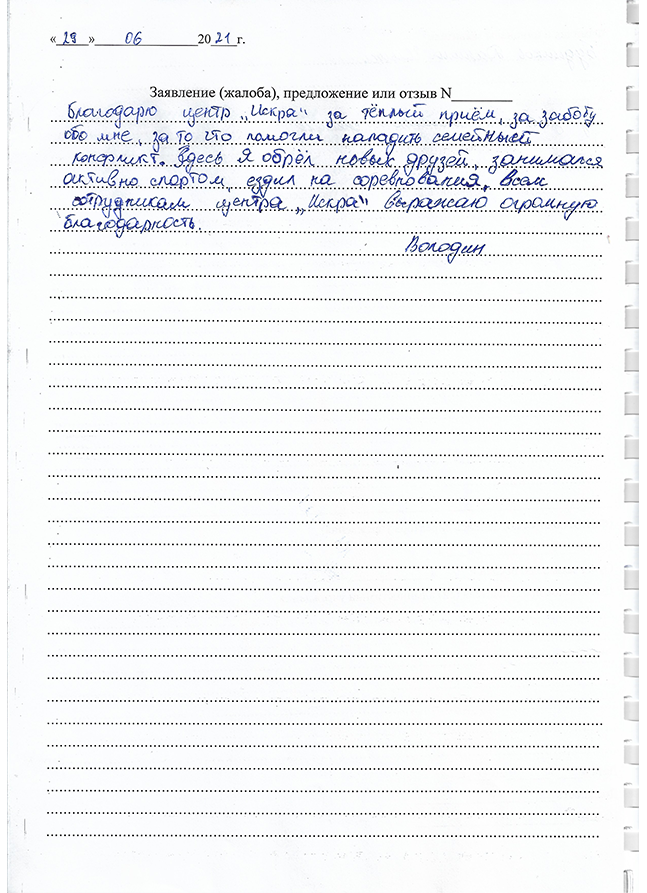 « 29 » 06 2021 г.
Заявление (жалоба), предложение или отзыв N
Благодарю центр „Искра" за тёплый приём, за заботу
обо мне, за то что помогли наладить семейный
конфликт. Здесь я обрёл новых друзей, занимался
активно спортом, ездил на соревнования. Всем
сотрудникам центра „Искра" выражаю огромную
благодарность.
Володин